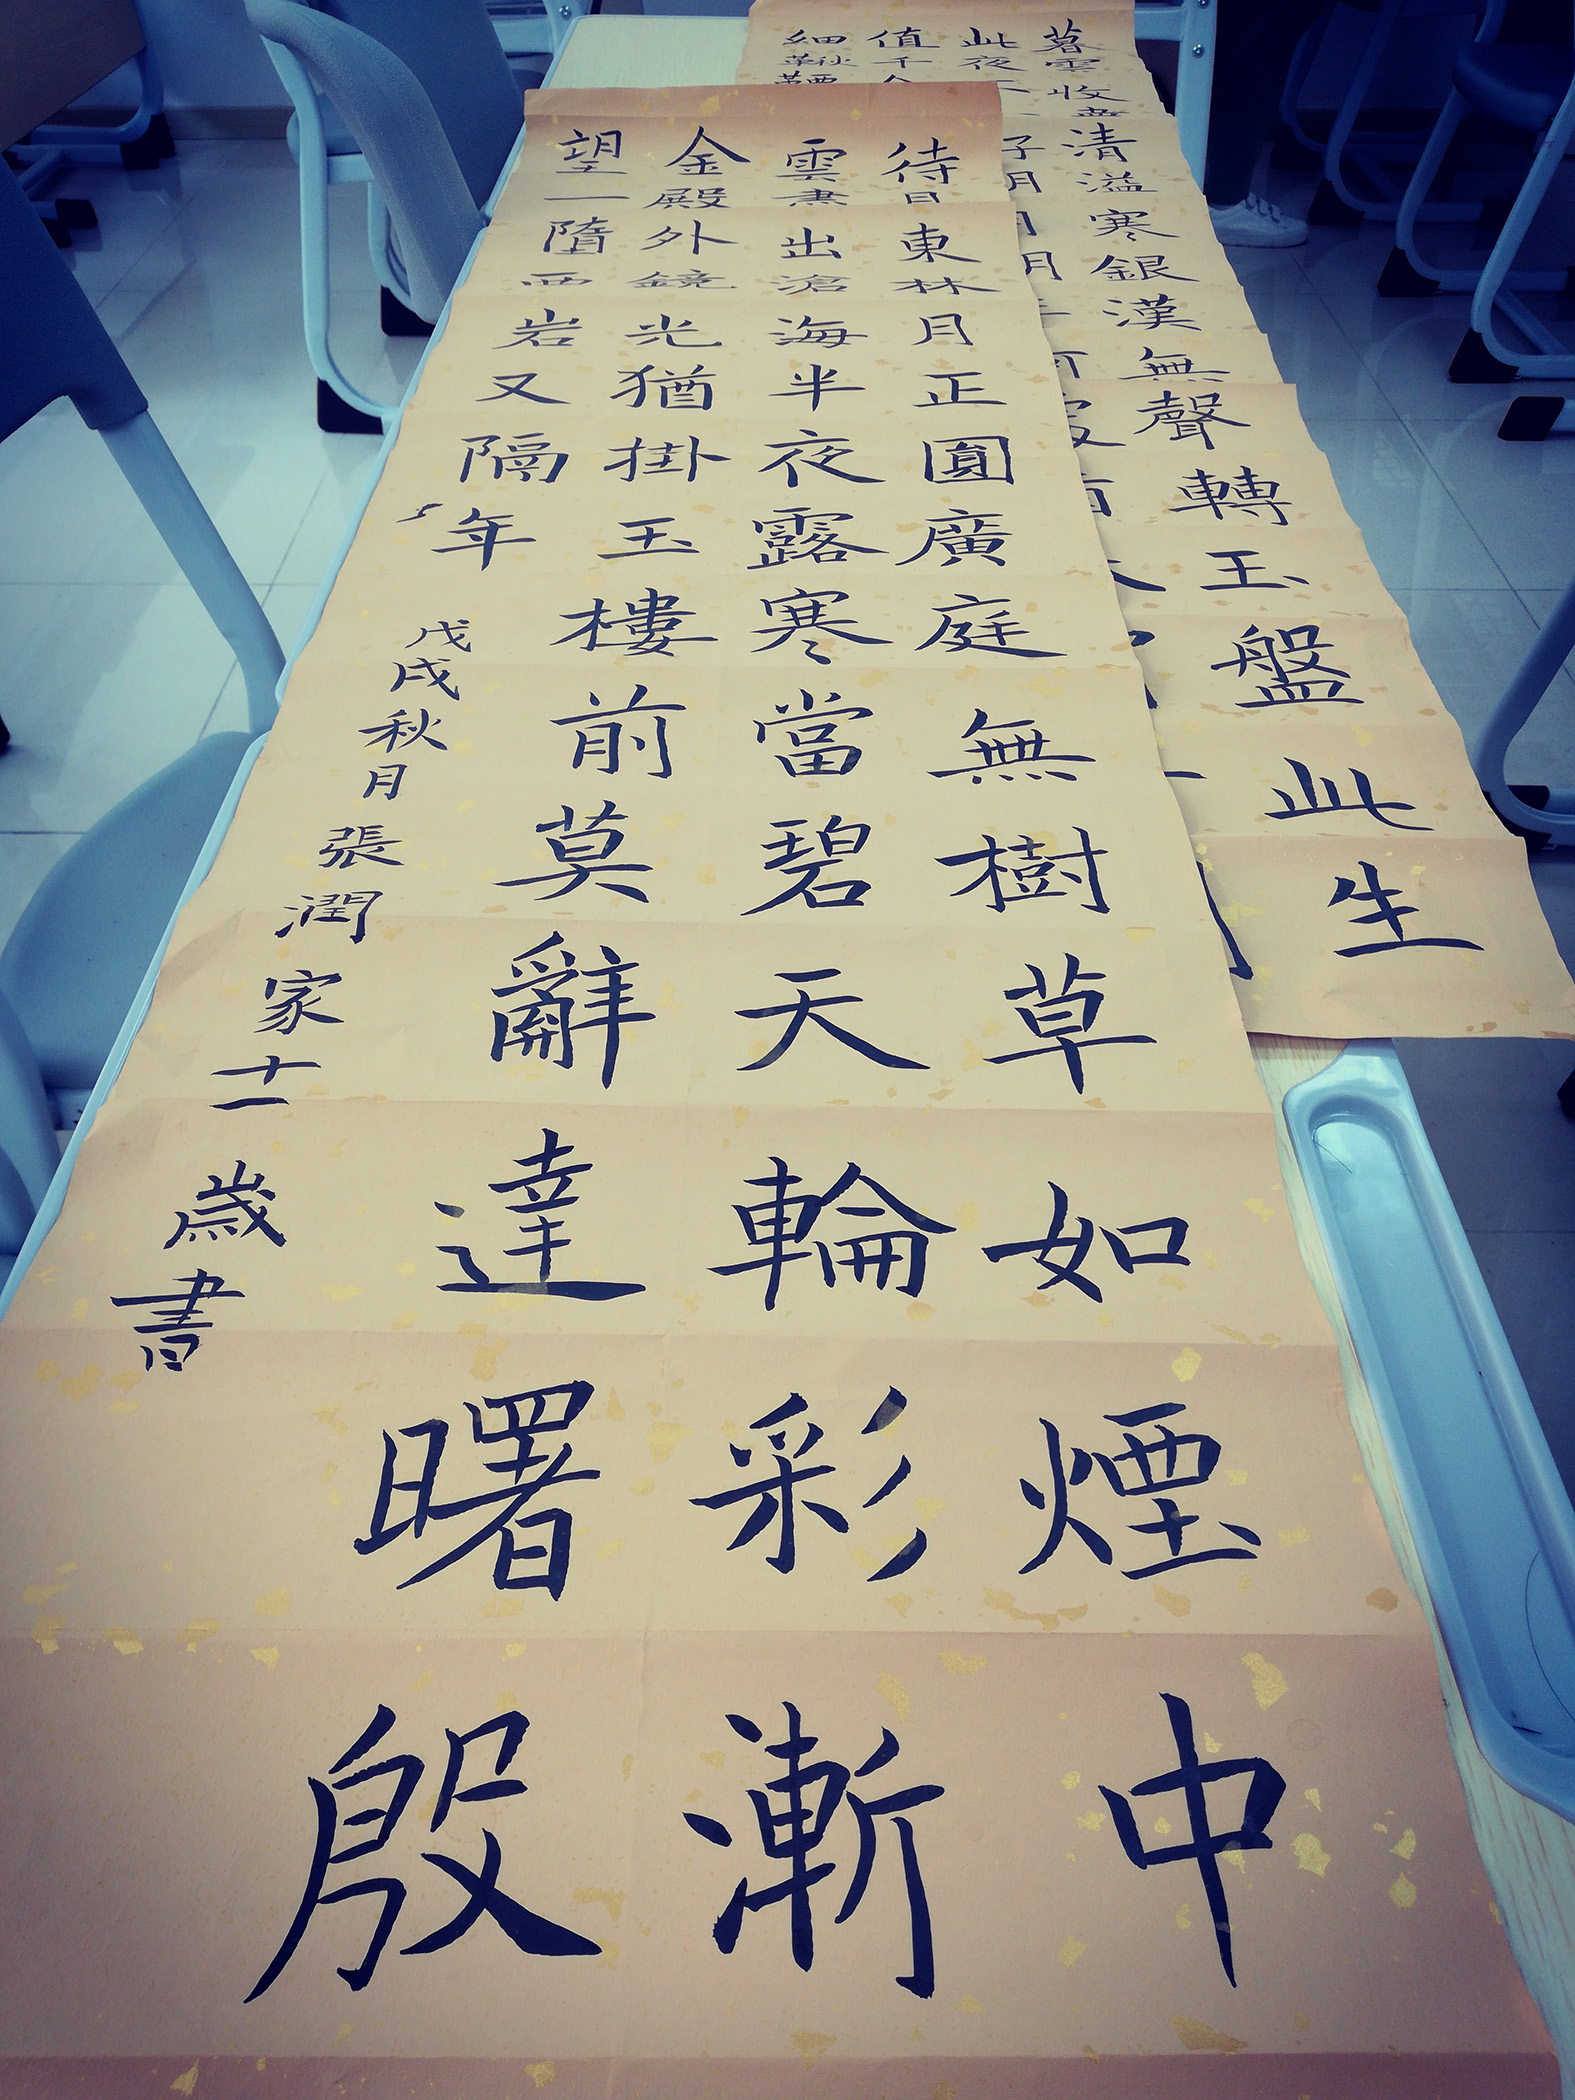 暮雲收盡清溢寒銀漢無聲轉玉盤此生
此夜
值千
細鞦
待月東林月正圓廣庭無樹草如煙中
雲盡出滄海半夜露寒當碧天輪彩漸
金殿外鏡光猶掛玉樓前莫辭達曙殷
望一墮西岩又隔年
戊戌秋月張潤家十一歲書